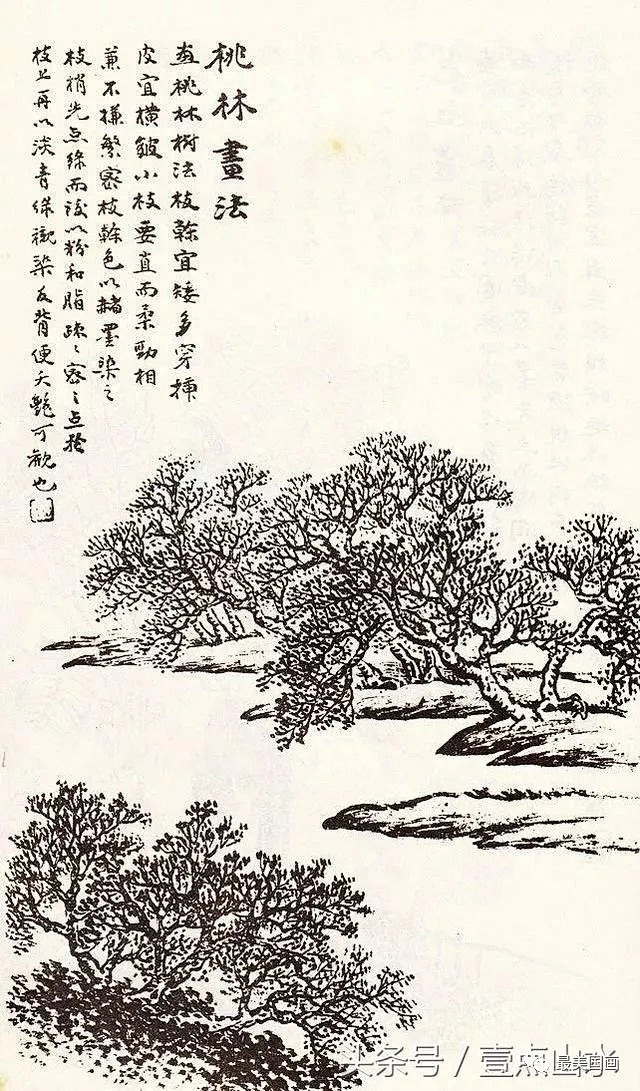 桃林畫法
畫桃林樹法枝榦宜矮多穿揷
皮宜橫皴小枝要直而柔勁相
兼不嫌繁密枝榦色以赭墨染之
枝梢先点綠而後以粉和脂疎々密々点於
枝上再以淡青綠襯染反背便夭艷可觀也
头条号／壹点山水
最美国画